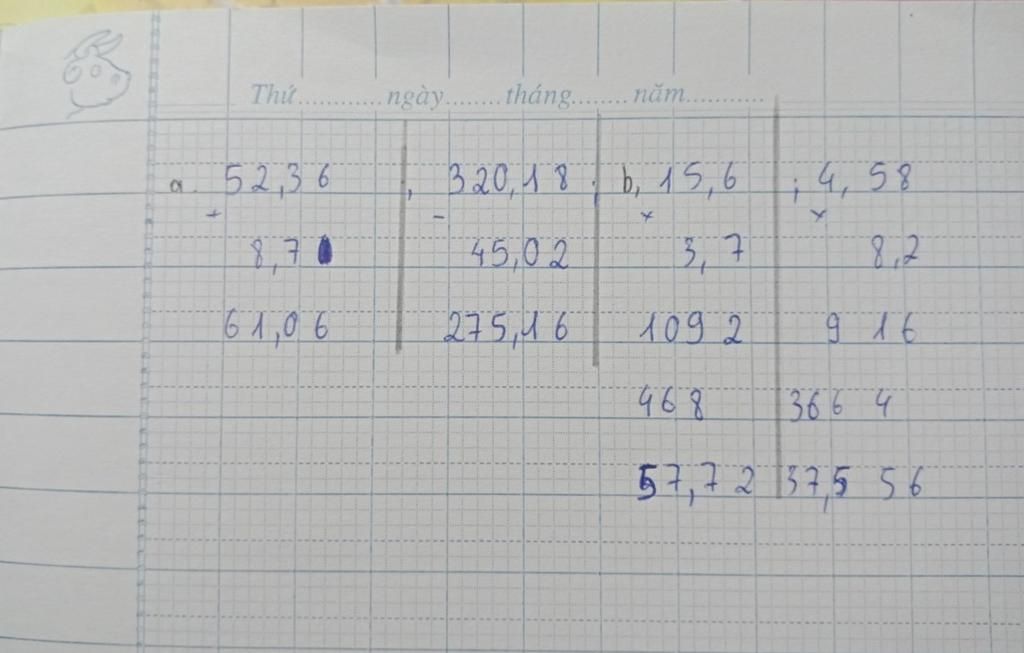 Thứ............ngày........tháng........năm...........
a. 52,36 , 320,18 ; b, 15,6 ; 4,58
+ - × ×
8,7 45,02 3,7 8,2
61,06 275,16 1092 916
468 3664
57,72 37,556